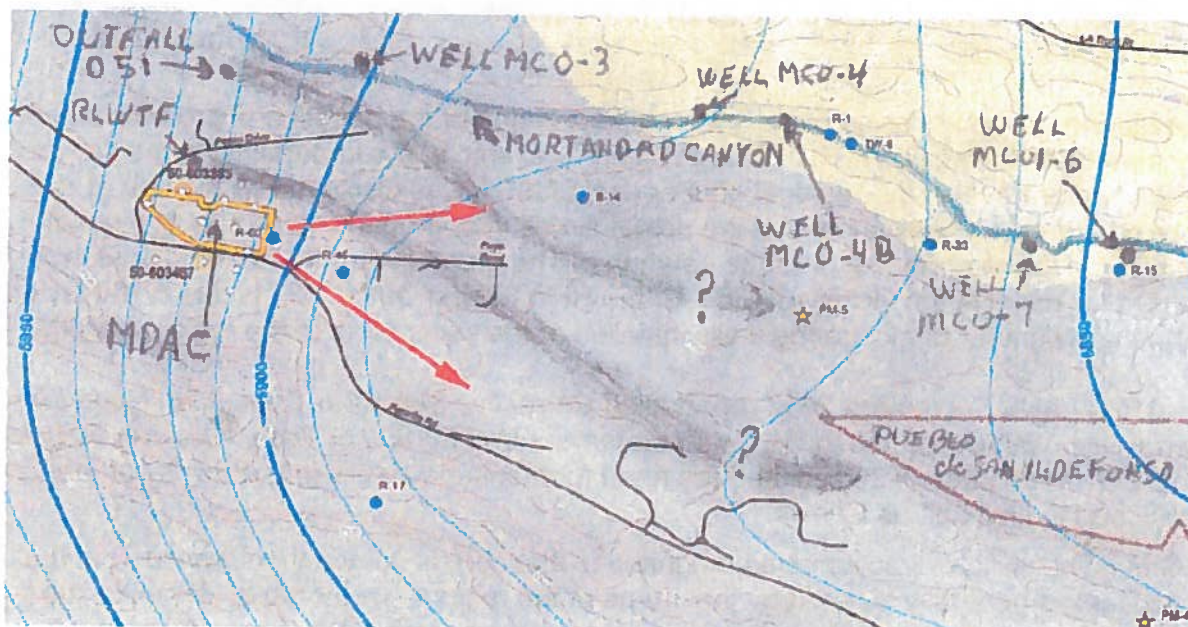 OUTFALL
051
WELL MCO-3
WELL MCO-4
RLWTF
MORTANDAD CANYON
R-1
WELL
MCOI-6
50-603383
R-14
WELL
MCO-4B
R-33
R-15
50-603467
R-46
MDAC
PM-5
WELL
MCO-7
?
5900
5850
?
PUEBLO
de SAN ILDEFONSO
R-17
PM-4